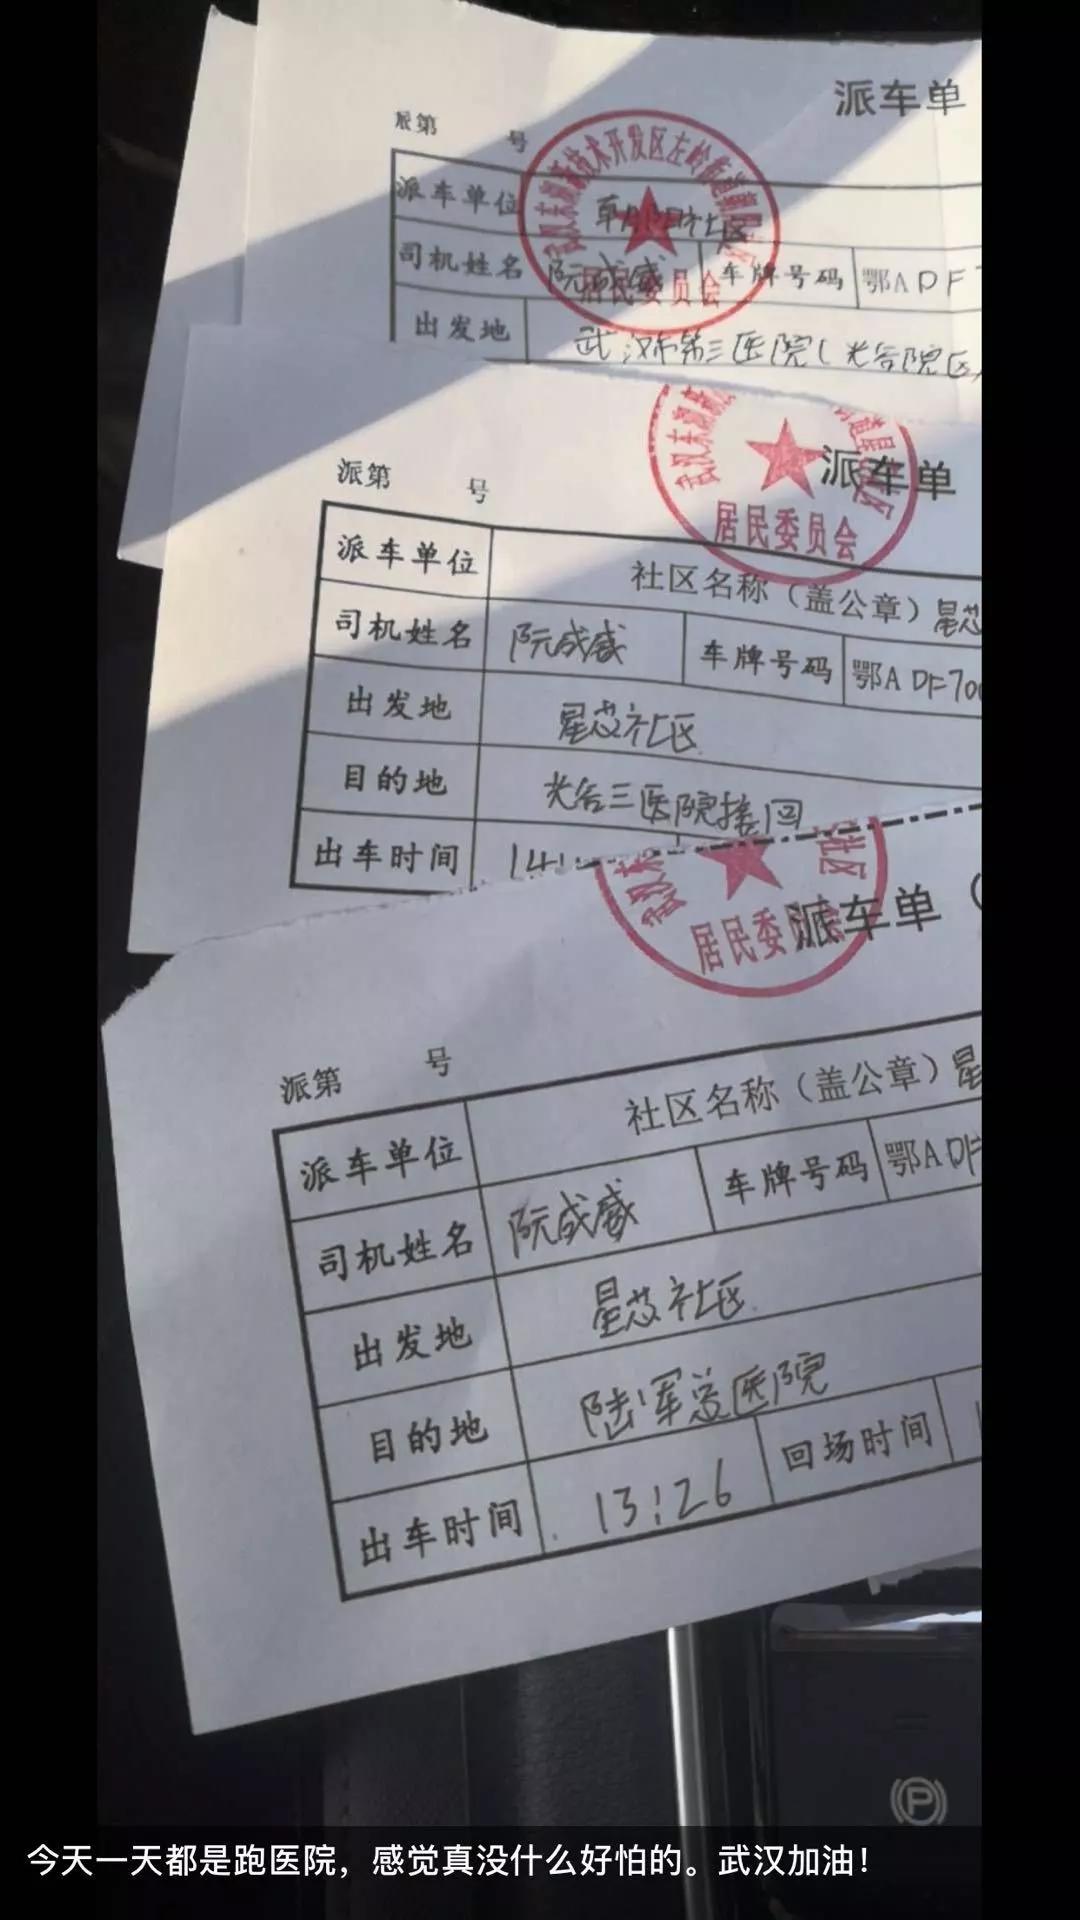 派车单
派第 号
派车单位 社区
司机姓名 阮成威 车牌号码 鄂A DF7
出发地 武汉市第三医院(光谷院区
居民委员会
派车单
派第 号
居民委员会
派车单位 社区名称（盖公章）星芯
司机姓名 阮成威 车牌号码 鄂A DF70
出发地 星芯社区
目的地 光谷三医院接回
出车时间 14:
社区
派车单（
居民委员会
派第 号
派车单位 社区名称（盖公章）星
司机姓名 阮成威 车牌号码 鄂A DF
出发地 星芯社区
目的地 陆军总医院
出车时间 13:26 回场时间 1
P
今天一天都是跑医院，感觉真没什么好怕的。武汉加油！